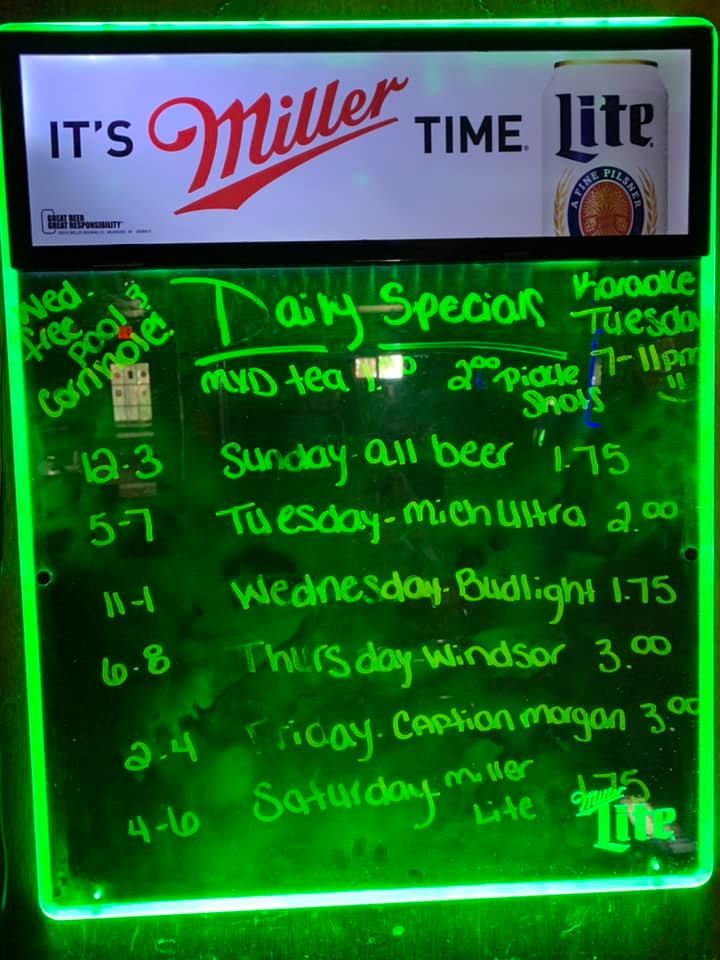 IT'S Miller TIME.
Lite
A FINE PILSNER
GREAT BEER
GREAT RESPONSIBILITY
Wed.
free
pool &
Cornhole!
Daily Specials
Karaoke
Tuesday
7-11pm
MXD tea
2.00 pickle
Shots
12-3 Sunday-all beer 1.75
5-7 Tuesday-Mich Ultra 2.00
11-1 Wednesday-Budlight 1.75
6-8 Thursday-Windsor 3.00
2-4 Friday-CAPtion morgan 3.00
4-6 Saturday-miller
Lite 1.75
Miller
Lite